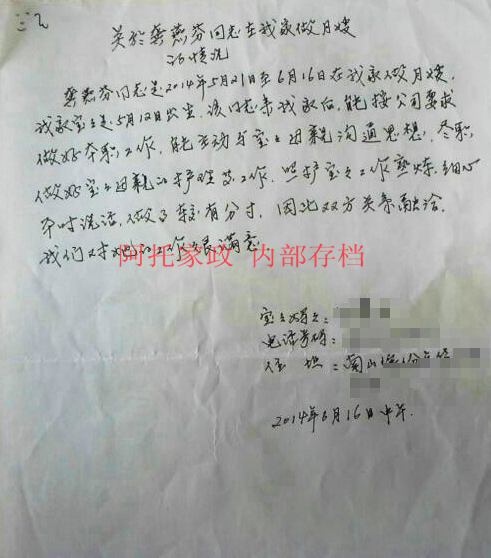 关於龚燕芬同志在我家做月嫂
的情况
龚燕芬同志是2014年5月21日至6月16日在我家做月嫂，
我家宝宝是5月12日出生，该同志来我家后，能按公司要求
做好本职工作，能主动与宝宝母亲沟通思想，尽职
做好宝宝母亲的护理等工作，照护宝宝工作熟炼、细心
平时说话、做事较有分寸，因此双方关系融洽，
我们对她的工作很满意。
阿托家政 内部存档
宝宝
电话号码：
住址：南山
2014年6月16日中午.